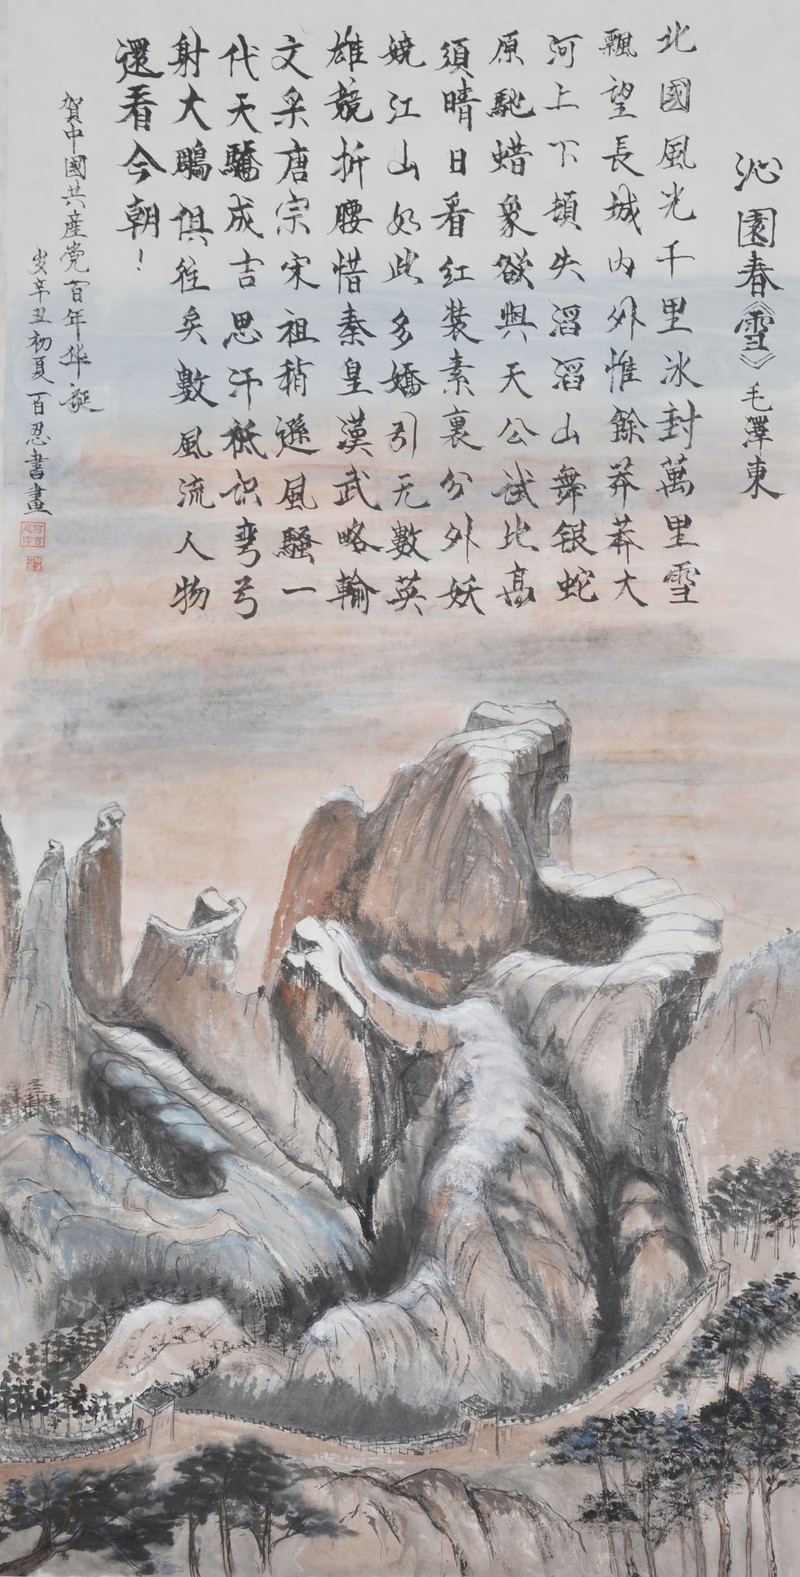 沁園春《雪》毛澤東
北國風光千里冰封萬里雪
飄望長城内外惟餘莽莽大
河上下頓失滔滔山舞银蛇
原馳蜡象欲與天公试比高
須晴日看红装素裹分外妖
娆江山如此多嬌引无數英
雄競折腰惜秦皇漢武略輸
文采唐宗宋祖稍遜風騷一
代天驕成吉思汗祗识弯弓
射大鵰俱往矣數風流人物
還看今朝！
賀中國共産党百年华诞
岁辛丑初夏百忍書畫